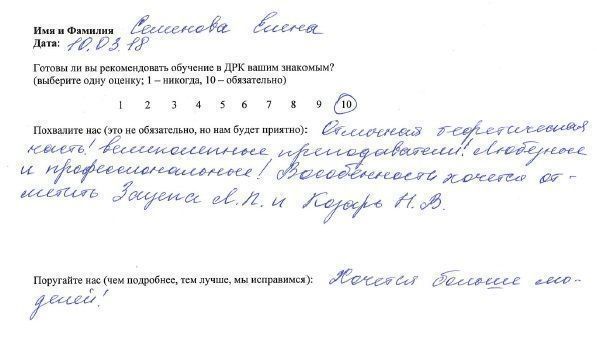 Имя и Фамилия Семенова Елена
Дата: 10.03.18
Готовы ли вы рекомендовать обучение в ДРК вашим знакомым?
(выберите одну оценку; 1 – никогда, 10 – обязательно)
1 2 3 4 5 6 7 8 9 10
Похвалите нас (это не обязательно, но нам будет приятно): Отличная теоретическая
часть! великолепные преподаватели! Любезные
и профессиональные! В особенности хочется от-
метить Зацепа Л.П. и Козарь Н.В.
Поругайте нас (чем подробнее, тем лучше, мы исправимся): Хочется больше мо-
делей!